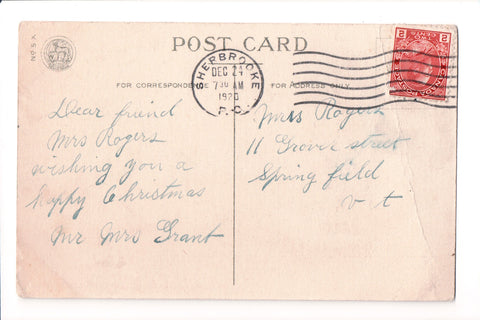 No 5 A.
POST CARD
FOR CORRESPONDENCE
FOR ADDRESS ONLY.
SHERBROOKE
DEC 24
7 30 AM
1920
P.Q.
2 CENTS 2
CANADA POSTAGE
Dear friend
Mrs Rogers
wishing you a
happy Christmas
Mr Mrs Grant
Mrs Rogers
11 Grove street
Spring field
vt